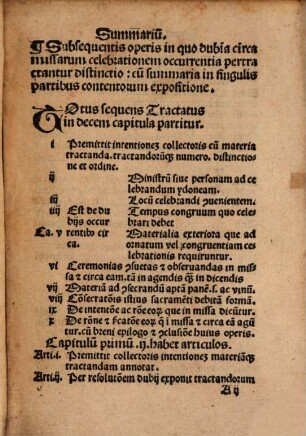 Summariū.
¶ Subsequentis operis in quo dubīa circa
missarum celebrationem occurrentia pertra
ctantur distinctio: cū summaria in singulis
partibus contentorum expositione.
TOtus sequens Tractatus
in decem capitula partitur.
i Premittit intentionez collectoris cū materia
tractanda. tractandorūqz numero. distinctio
ne et ordine.
ij Ministrū siue personam ad ce
lebrandum ydoneam.
iij Locū celebrandi ꝯuenientem.
iiij Est de du Tempus congruum quo cele
bijs occur brari debet
Ca. v rentibꝰ cir Materialia exteriora que ad
ca. ornatum vel ꝯgruentiam cele
brationis requiruntur.
vj Ceremonias ꝯsuetas et obseruandas in mis
sa et circa eam. tā in agendis qz̄ in dicendis
vij Materiā ad ꝯsecrandū aptā pane. s. ac vinū.
viij Cōsecratōis istius sacramēti debitā formā.
ix De intentōe ac rōe eoꝝ que in missa dicūtur.
x De rōne et signific̄atōe eoꝝ q̄ i missa et circa eā agū
tur. cū breui epilogo et ꝯclusiōe huius operis.
Capitulū primū .ij. habet articulos.
Arti. i. Premittit collectoris intentionez materiāqz
tractandam annotat.
Arti. ij. Per resolutōem dubij exponit tractandorum
A ij